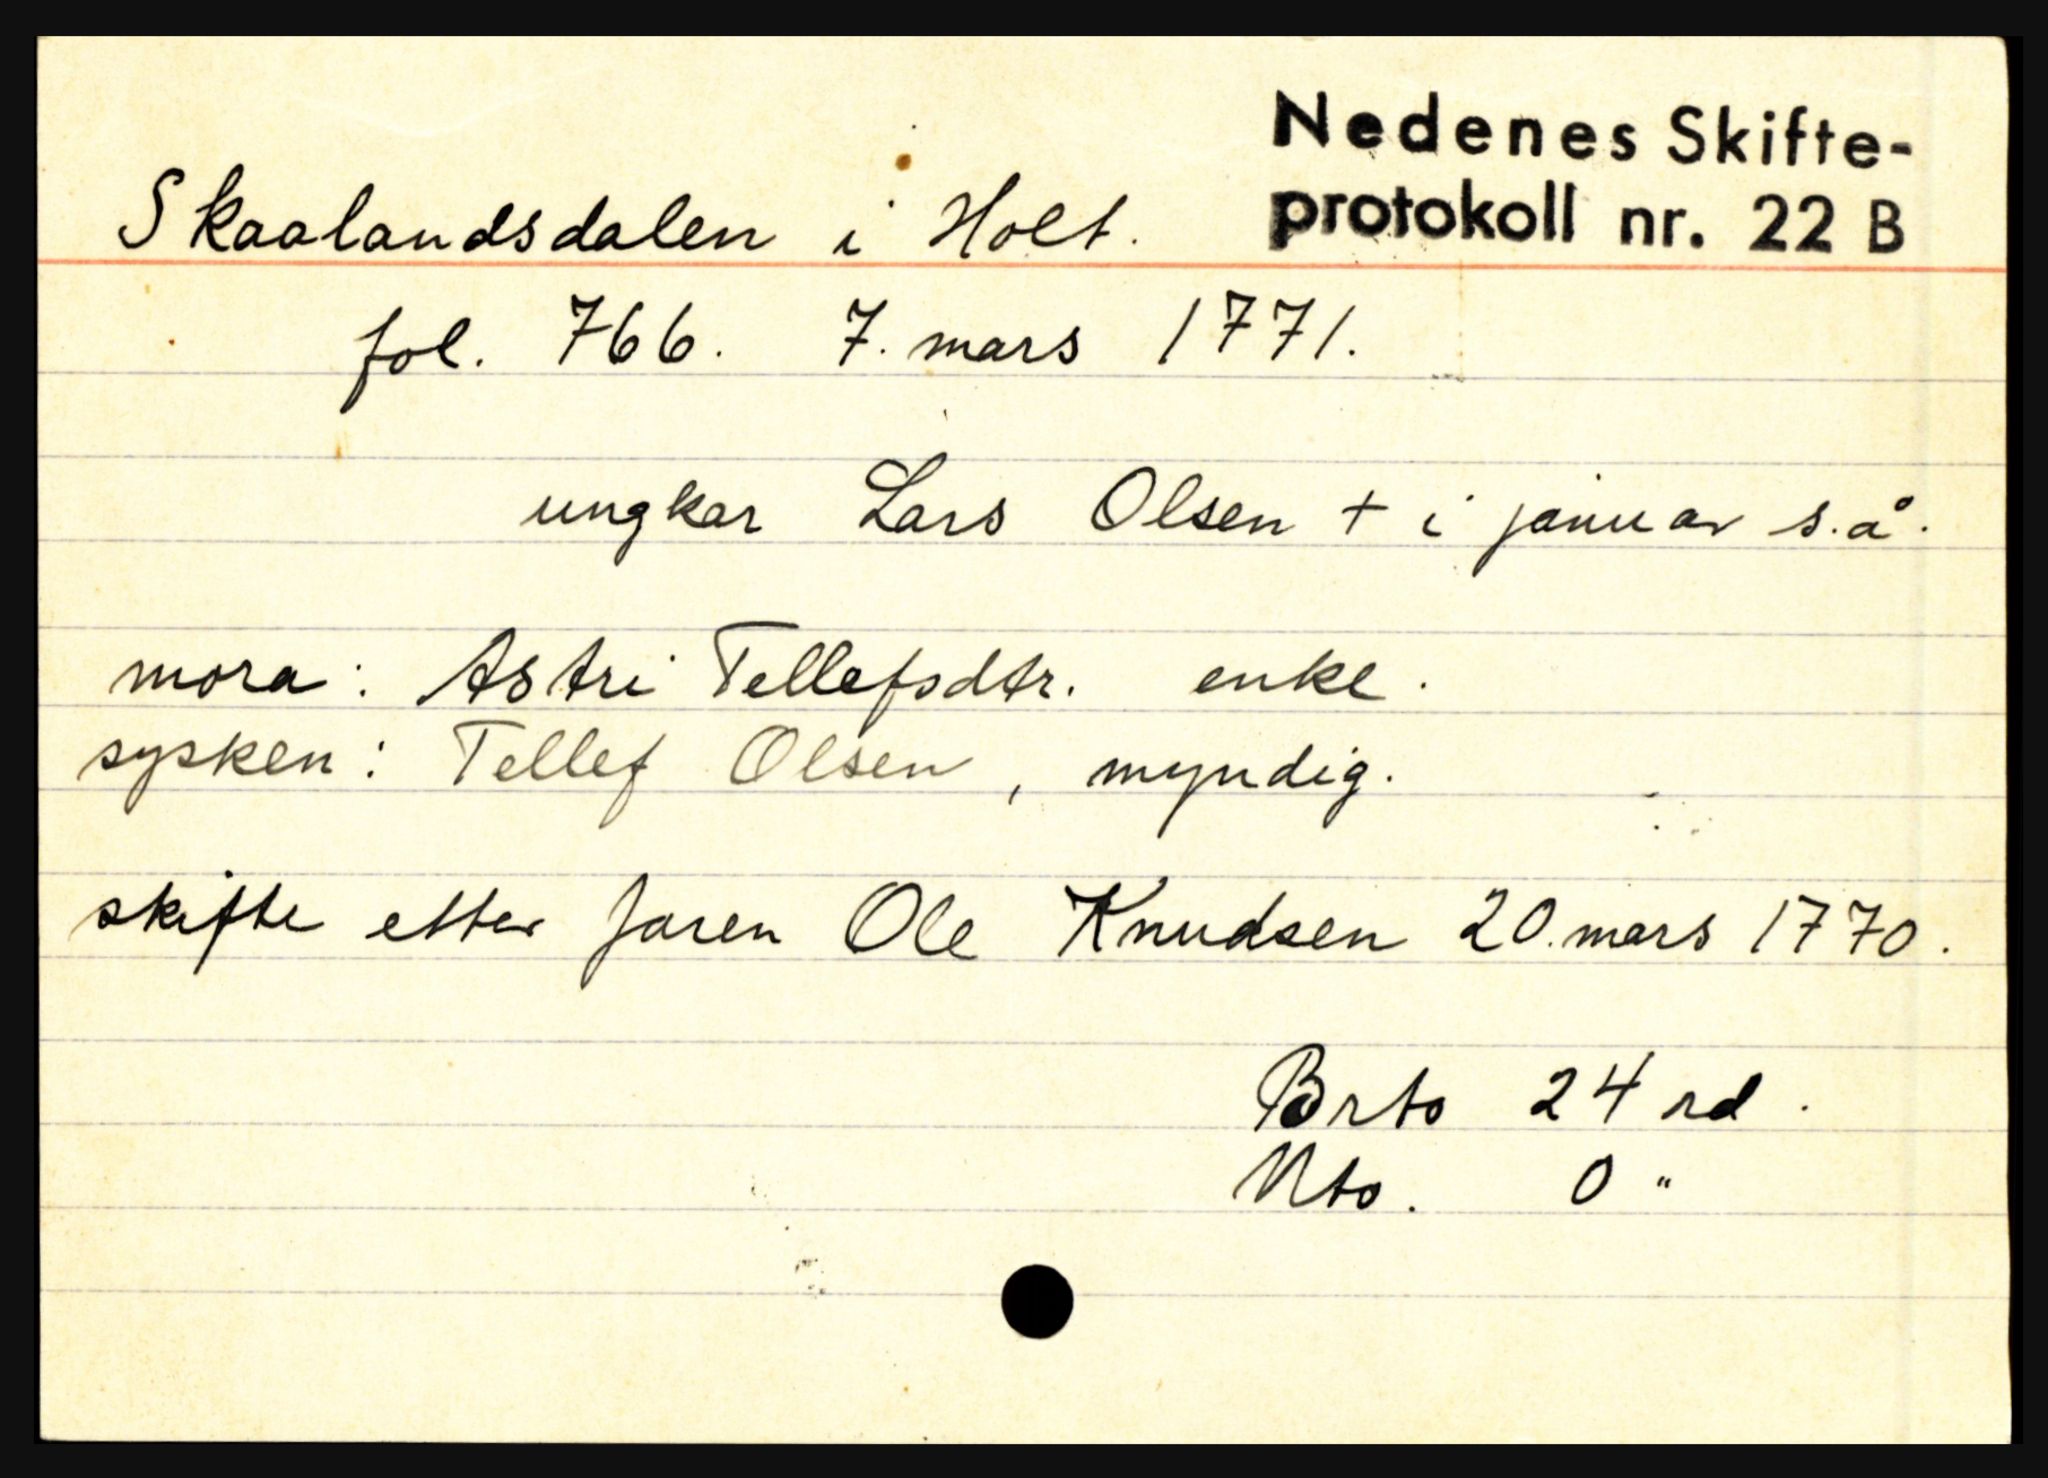 Nedenes Skifte-
protokoll nr. 22 B
Skaalandsdalen i Holt.
fol. 766. 7. mars 1771.
ungkar Lars Olsen + i januar s.å.
mora: Astri Tellefsdtr. enke.
sysken: Tellef Olsen, myndig.
skifte etter faren Ole Knudsen 20. mars 1770.
Brto 24 rd.
Nto. 0 "